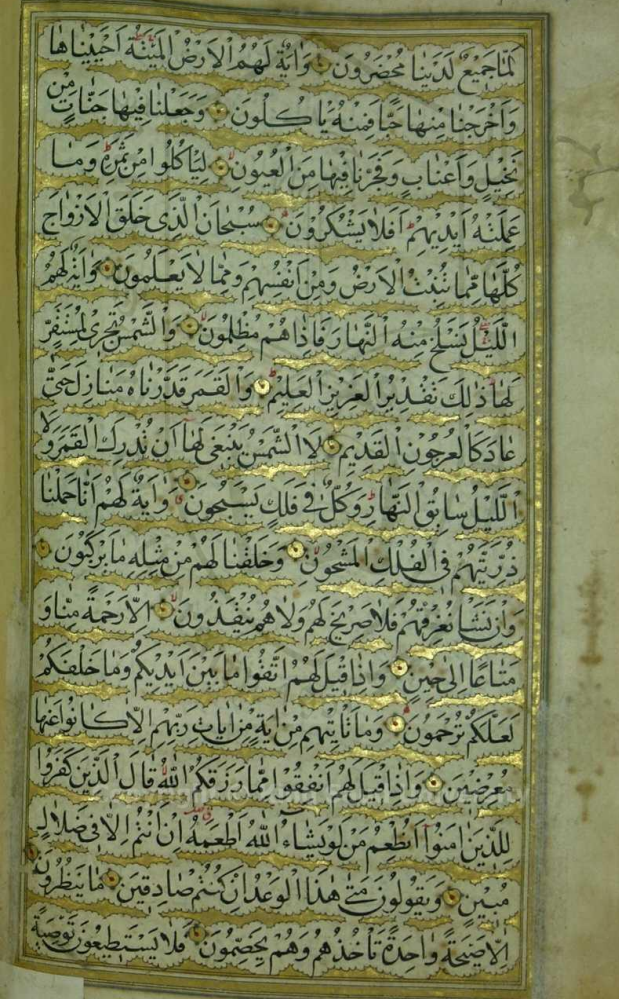 لَمَّا جَمِيعٌ لَدَيْنَا مُحْضَرُونَ وَاٰيَةٌ لَهُمُ الْاَرْضُ الْمَيْتَةُ اَحْيَيْنَاهَا
وَاَخْرَجْنَا مِنْهَا حَبًّا فَمِنْهُ يَاْكُلُونَ وَجَعَلْنَا فِيهَا جَنَّاتٍ مِنْ
نَخِيلٍ وَاَعْنَابٍ وَفَجَّرْنَا فِيهَا مِنَ الْعُيُونِ لِيَاْكُلُوا مِنْ ثَمَرِهِ وَمَا
عَمِلَتْهُ اَيْدِيهِمْ اَفَلَا يَشْكُرُونَ سُبْحَانَ الَّذِى خَلَقَ الْاَزْوَاجَ
كُلَّهَا مِمَّا تُنْبِتُ الْاَرْضُ وَمِنْ اَنْفُسِهِمْ وَمِمَّا لَا يَعْلَمُونَ وَاٰيَةٌ لَهُمُ
الَّيْلُ نَسْلَخُ مِنْهُ النَّهَارَ فَاِذَا هُمْ مُظْلِمُونَ وَالشَّمْسُ تَجْرِى لِمُسْتَقَرٍّ
لَهَا ذٰلِكَ تَقْدِيرُ الْعَزِيزِ الْعَلِيمِ وَالْقَمَرَ قَدَّرْنَاهُ مَنَازِلَ حَتّٰى
عَادَ كَالْعُرْجُونِ الْقَدِيمِ لَا الشَّمْسُ يَنْبَغِى لَهَا اَنْ تُدْرِكَ الْقَمَرَ وَلَا
الَّيْلُ سَابِقُ النَّهَارِ وَكُلٌّ فِى فَلَكٍ يَسْبَحُونَ وَاٰيَةٌ لَهُمْ اَنَّا حَمَلْنَا
ذُرِّيَّتَهُمْ فِى الْفُلْكِ الْمَشْحُونِ وَخَلَقْنَا لَهُمْ مِنْ مِثْلِهِ مَا يَرْكَبُونَ
وَاِنْ نَشَاْ نُغْرِقْهُمْ فَلَا صَرِيخَ لَهُمْ وَلَا هُمْ يُنْقَذُونَ اِلَّا رَحْمَةً مِنَّا وَ
مَتَاعًا اِلٰى حِينٍ وَاِذَا قِيلَ لَهُمُ اتَّقُوا مَا بَيْنَ اَيْدِيكُمْ وَمَا خَلْفَكُمْ
لَعَلَّكُمْ تُرْحَمُونَ وَمَا تَاْتِيهِمْ مِنْ اٰيَةٍ مِنْ اٰيَاتِ رَبِّهِمْ اِلَّا كَانُوا عَنْهَا
مُعْرِضِينَ وَاِذَا قِيلَ لَهُمْ اَنْفِقُوا مِمَّا رَزَقَكُمُ اللّٰهُ قَالَ الَّذِينَ كَفَرُوا
لِلَّذِينَ اٰمَنُوا اَنُطْعِمُ مَنْ لَوْ يَشَاءُ اللّٰهُ اَطْعَمَهُ اِنْ اَنْتُمْ اِلَّا فِى ضَلَالٍ
مُبِينٍ وَيَقُولُونَ مَتٰى هٰذَا الْوَعْدُ اِنْ كُنْتُمْ صَادِقِينَ مَا يَنْظُرُونَ
اِلَّا صَيْحَةً وَاحِدَةً تَاْخُذُهُمْ وَهُمْ يَخِصِّمُونَ فَلَا يَسْتَطِيعُونَ تَوْصِيَةً